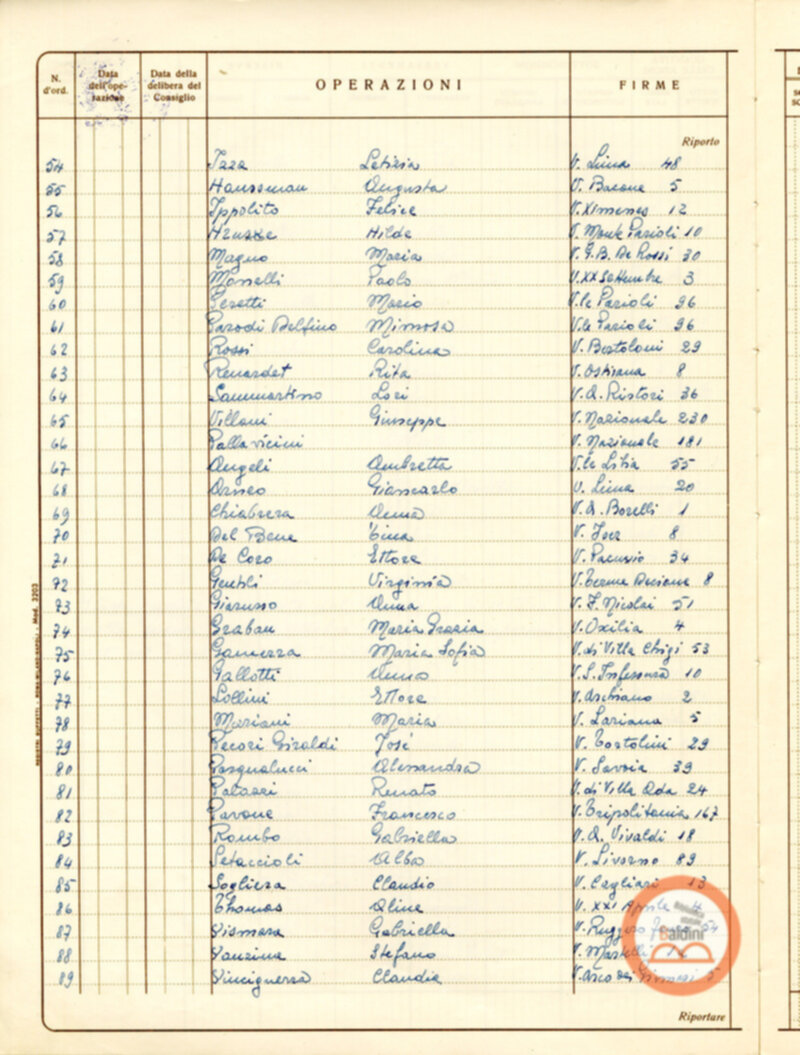 N. d'ord. Data dell'ope- razione Data della delibera del Consiglio OPERAZIONI FIRME
Riporto
54 Izza Letizia V. Lima 48
55 Haussman Augusta V. Bacone 5
56 Ippolito Felice V. Ximenes 12
57 Hilde V. Monte Parioli 10
58 Magno Maria V. G.B. De Rossi 30
59 Monelli Paolo V. XX Settembre 3
60 Peretti Mario V.le Parioli 96
61 Parodi Delfino Mimosa V.le Parioli 96
62 Rossi Carolina V. Bertoloni 29
63 Renardet Rita V. Ostriana 8
64 Sammartino Lori V. A. Ristori 36
65 Villani Giuseppe V. Nazionale 230
66 Pallavicini V. Nazionale 181
67 Angeli Ambretta V.le Libia 55
68 Orneo Giancarlo V. Lima 20
69 Chiabrera Anna V. A. Borelli 1
70 Del Bene Tina V. 8
71 De Coro Ettore V. Pacuvio 34
72 Gentili Virginia V. Terme Deciane 8
73 Giarusso Anna V. F. Nicolai 51
74 Graban Maria Grazia V. Oxilia 4
75 Gamerra Maria Sofia V. di Villa Chigi 53
76 Gallotti Anna V. S. Infessura 10
77 Lollini Ettore V. Aschiano 2
78 Mariani Maria V. Lariana 5
79 Pecori Giraldi José V. Bortolini 29
80 Pasqualucci Alessandra V. Savoia 39
81 Palazzi Renato V. di Villa Ada 24
82 Pavone Francesco V. Tripolitania 167
83 Rombo Gabriella V. A. Vivaldi 18
84 Setaccioli Alba V. Livorno 89
85 Sogliera Claudio V. Cagliari 13
86 Thomas Aline V. XXI Aprile 4
87 Vismara Gabriella V. Ruggero 54
88 Vanzina Stefano V. Mastelli
89 Vinciguerra Claudia V. Arco dei Ginnasi 5
Baldini
Riportare
REGISTRI BUFFETTI - ROMA-MILANO-NAPOLI - Mod. 3203